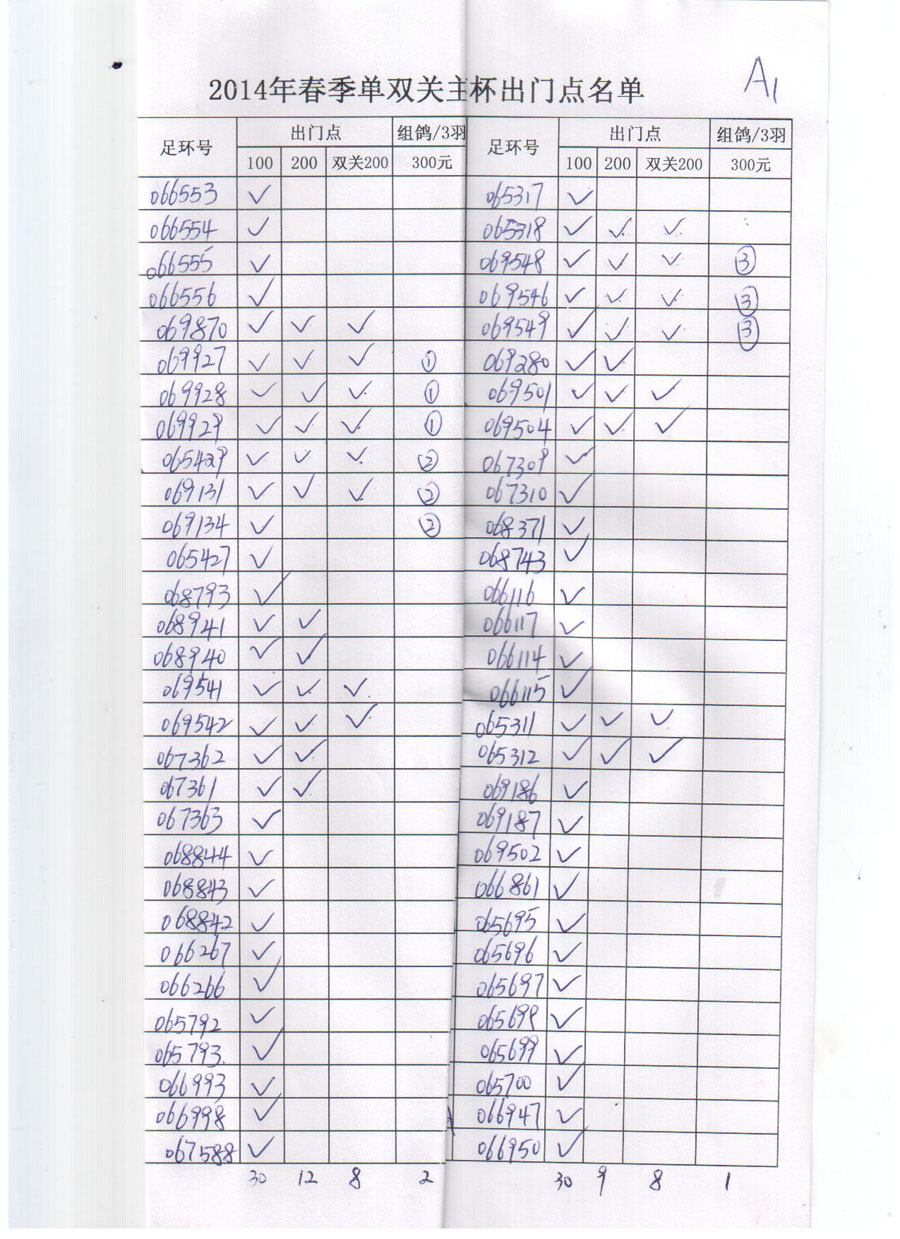 2014年春季单双关主杯出门点名单 A1
足环号 出门点 组鸽/3羽 足环号 出门点 组鸽/3羽
100 200 双关200 300元 100 200 双关200 300元
066553 ✓ 065317 ✓
066554 ✓ 065318 ✓ ✓ ✓
066555 ✓ 069548 ✓ ✓ ✓ ③
066556 ✓ 069546 ✓ ✓ ✓ ③
069870 ✓ ✓ ✓ 069549 ✓ ✓ ✓ ③
069927 ✓ ✓ ✓ ① 069280 ✓ ✓
069928 ✓ ✓ ✓ ① 069501 ✓ ✓ ✓
069929 ✓ ✓ ✓ ① 069504 ✓ ✓ ✓
065429 ✓ ✓ ✓ ② 067309 ✓
069131 ✓ ✓ ✓ ② 067310 ✓
069134 ✓ ② 068371 ✓
065427 ✓ 068743 ✓
068793 ✓ 066116 ✓
068941 ✓ ✓ 066117 ✓
068940 ✓ ✓ 066114 ✓
069541 ✓ ✓ ✓ 066115 ✓
069542 ✓ ✓ ✓ 065311 ✓ ✓ ✓
067362 ✓ ✓ 065312 ✓ ✓ ✓
067361 ✓ ✓ 069186 ✓
067363 ✓ 069187 ✓
068844 ✓ 069502 ✓
068843 ✓ 066861 ✓
068842 ✓ 065695 ✓
066267 ✓ 065696 ✓
066266 ✓ 065697 ✓
065792 ✓ 065698 ✓
065793 ✓ 065699 ✓
066993 ✓ 065700 ✓
066998 ✓ 066947 ✓
067588 ✓ 066950 ✓
30 12 8 2 30 9 8 1